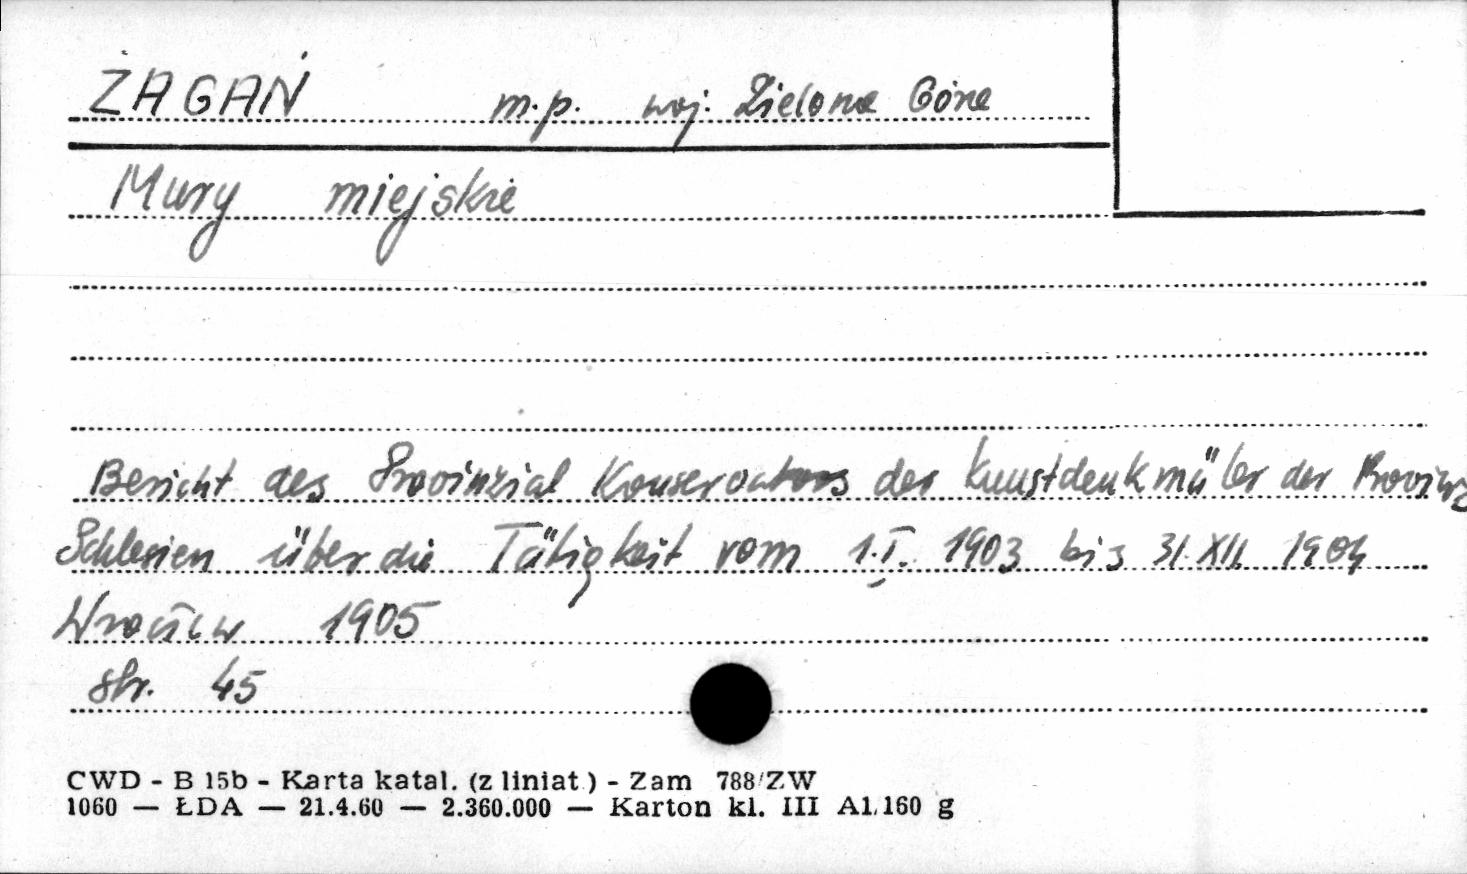 ŻAGAŃ m.p. woj. Zielona Góra
Mury miejskie
Bericht des Provinzial Konservators der Kunstdenkmäler der Provinz
Schlesien über die Tätigkeit vom 1.I. 1903 bis 31.XII. 1904
Wrocław 1905
str. 45
CWD - B 15b - Karta katal. (z liniat.) - Zam 788/ZW
1060 — ŁDA — 21.4.60 — 2.360.000 — Karton kl. III A1.160 g